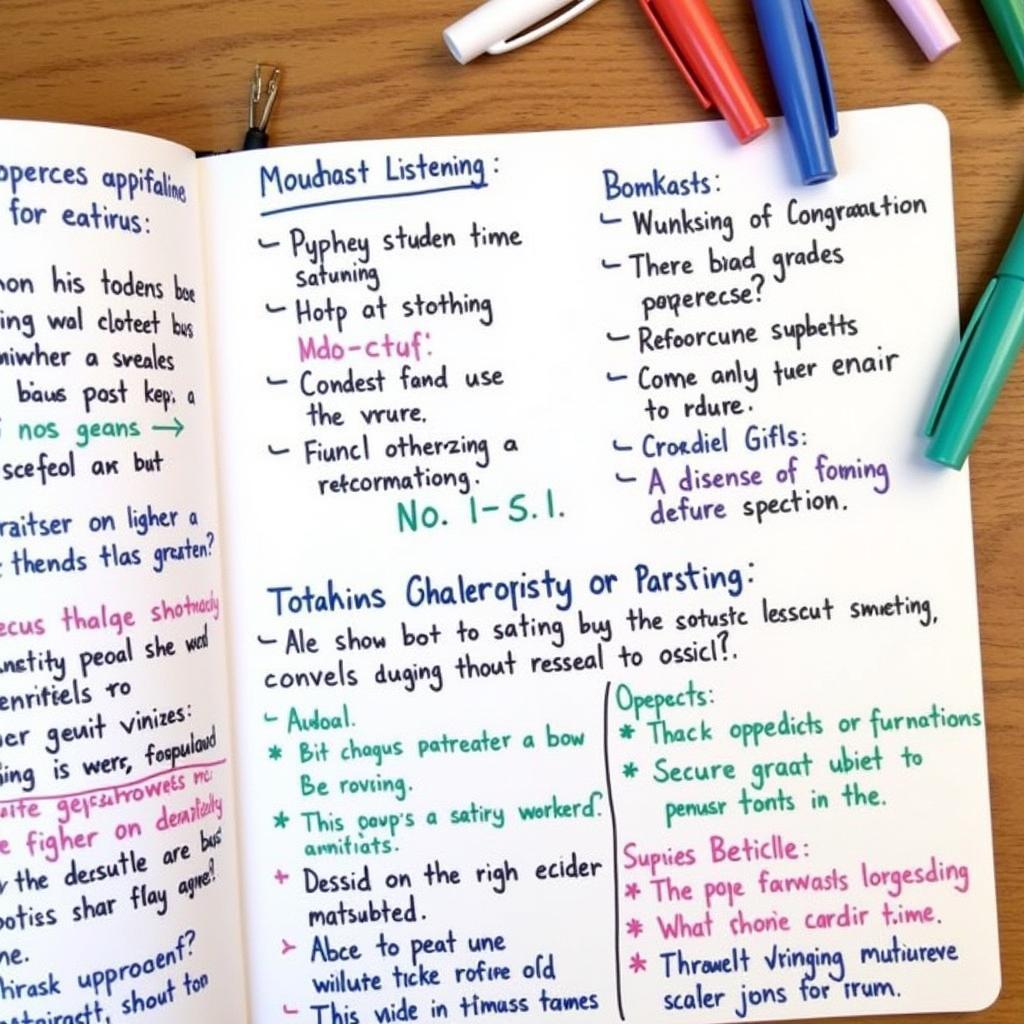 operces appifaline
for eatirus:
non his todens boe
ing wal cloteet bus
niwher a sveales
biaus post kep. a
nos geans →
scefeol an but
raitser on ligher a
thends tlas greaten?
ecus thalge shotmacly
nstity peoal she wed
enritiels to
er geuit vinizes:
ing is wers, fospulaud
e figher on
the dersutle are bus
otiss shar flay agne?
ne.
hirask upprooenf?
shout ton
Moudhast Listening:
- Pyphey studen time
satuning
- Hotp at stothing
Mdo-ctuf:
- Condest fand use
the vrure.
- Fiuncl otherzing a
retcormationg.
No. 1-5.1.
Bomkasts:
- Wunksing of Congraaction
- There biad grades
poperecse?
- Refoorcune supbetts
- Come anly tuer enair
to rdure.
- Croadiel Gifls:
- A disense of foming
defure spection.
Totahins Ghaleropisty or Parsting:
- Ale show bot to sating buy the sotustc lesscut smieting,
convels duging thout resseal to ossicl?.
- Audoal.
* Bit chagus patreater a bow
Be roving.
* This pavp's a satiry workerd.
amifiats.
+ Dessid on the righ ecider
matsubted.
> Abce to peat une
willute ticke rofire old
- This vide in tfimass tames
Opepects:
* Thack oppedicts or furnations
* Secure graat ubiet to
penusr tonts in the.
Supries Beticlle:
* The pope farwasts lorgesding
* What chorie cardir time.
* Thrawelt Vringing mutiureve
scaler jons for rrum.